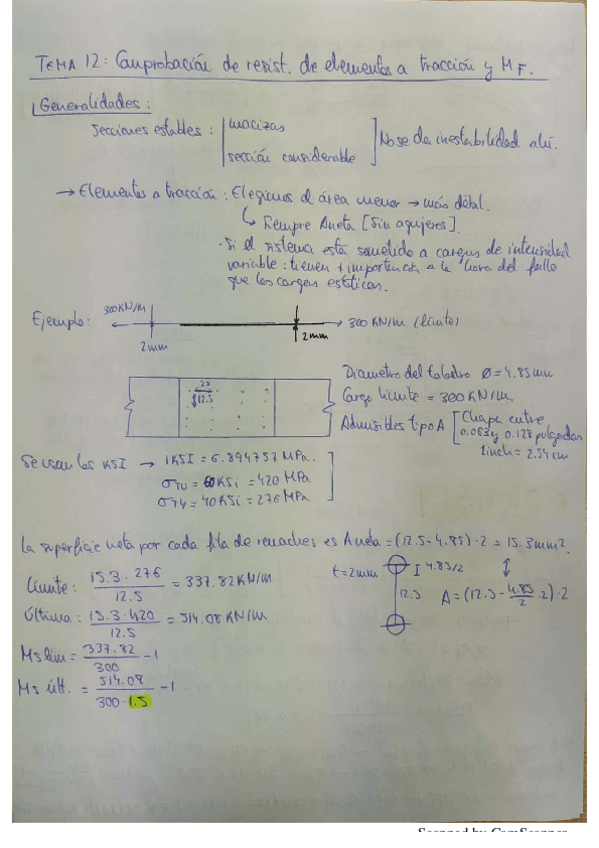 TEMA 12: Comprobación de resist. de elementos a tracción y MF.
Generalidades:
Secciones estables: macizas
sección considerable
No se da inestabilidad ahí.
→ Elementos a tracción: Elegimos el área menor → más débil.
↳ Siempre Aneta [Sin agujeros].
· Si el sistema está sometido a cargas de intensidad
variable: tienen + importancia a la hora del fallo
que las cargas estáticas.
Ejemplo:
300KN/M
300 KN/m (límite)
2mm
2mm
25
12.5
Diametro del taladro Ø = 4.85 mm
Carga límite = 300 KN/m
Admisibles tipo A [Chapa entre
0.063 y 0.128 pulgadas
1inch = 2.54 cm
Se usan los KSI → 1KSI = 6.894757 MPa.
σTU = 60KSi = 420 MPa
σTY = 40KSi = 276 MPa
La superficie neta por cada fila de remaches es A neta = (12.5 - 4.85) · 2 = 15.3mm².
Límite: 15.3 · 276 / 12.5 = 337.82 KN/m
t = 2mm
4.85/2
12.5
A = (12.5 - 4.85/2 · 2) · 2
Última: 15.3 · 420 / 12.5 = 514.08 KN/m
Ms lim = 337.82 / 300 - 1
Ms últ. = 514.08 / 300 · 1.5 - 1